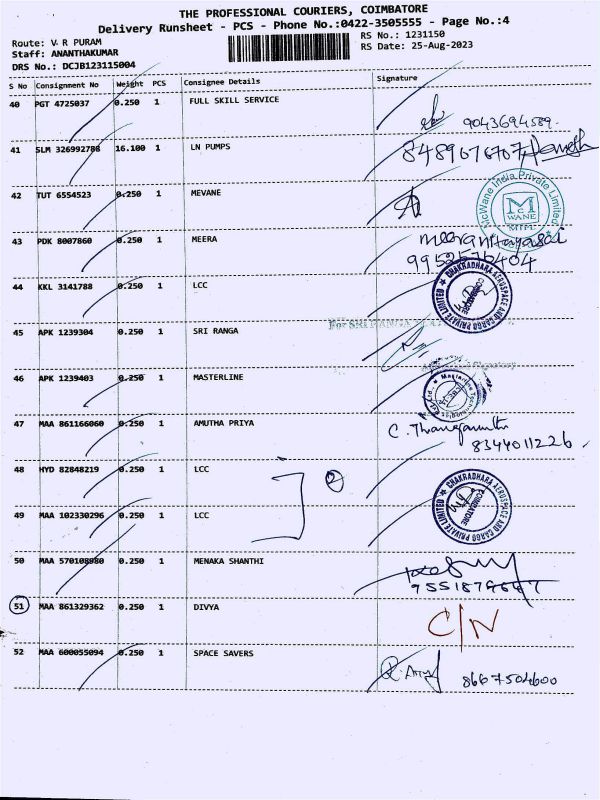 THE PROFESSIONAL COURIERS, COIMBATORE
Delivery Runsheet - PCS - Phone No.:0422-3505555 - Page No.:4
Route: V R PURAM
RS No.: 1231150
Staff: ANANTHAKUMAR
RS Date: 25-Aug-2023
DRS No.: DCJB123115004
S No Consignment No Weight PCS Consignee Details Signature
40 PGT 4725037 0.250 1 FULL SKILL SERVICE
9043694589.
41 SLM 326992786 16.100 1 LN PUMPS
8489676707
42 TUT 6554523 0.250 1 MEVANE
McWane India Private Limited
McWANE
43 PDK 8007860 0.250 1 MEERA
9952576404
44 KKL 3141788 0.250 1 LCC
CHAKRADHARA AEROSPACE AND CARGO PRIVATE LIMITED
COIMBATORE
45 APK 1239304 0.250 1 SRI RANGA
For SRI RANGA
46 APK 1239403 0.250 1 MASTERLINE
47 MAA 861166060 0.250 1 AMUTHA PRIYA
8344011226.
48 HYD 82848219 0.250 1 LCC
2
49 MAA 102330296 0.250 1 LCC
CHAKRADHARA AEROSPACE AND CARGO PRIVATE LIMITED
COIMBATORE
50 MAA 570108980 0.250 1 MENAKA SHANTHI
51 MAA 861329362 0.250 1 DIVYA
C/N
52 MAA 600055094 0.250 1 SPACE SAVERS
8667504600